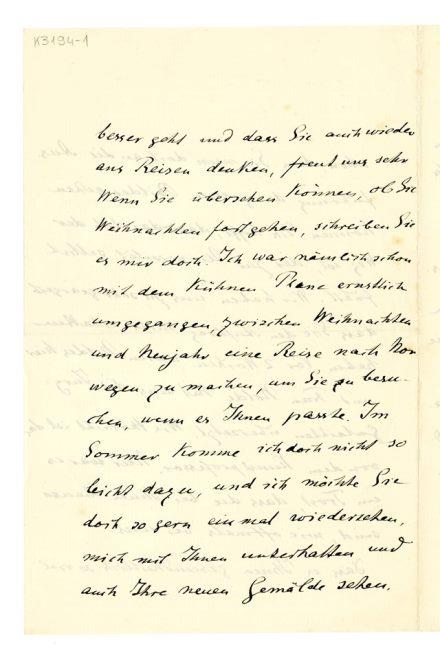 K3194-1
besser geht und dass Sie auch wieder
ans Reisen denken, freut uns sehr
Wenn Sie übersehen können, ob Sie
Weihnachten fortgehen, schreiben Sie
es mir doch. Ich war nämlich schon
mit dem kühnen Plane ernstlich
umgegangen, zwischen Weihnachten
und Neujahr eine Reise nach Nor
wegen zu machen, um Sie zu besu-
chen, wenn es Ihnen passte. Im
Sommer komme ich doch nicht so
leicht dazu, und ich möchte Sie
doch so gern einmal wiedersehen,
mich mit Ihnen unterhalten und
auch Ihre neuen Gemälde sehen.